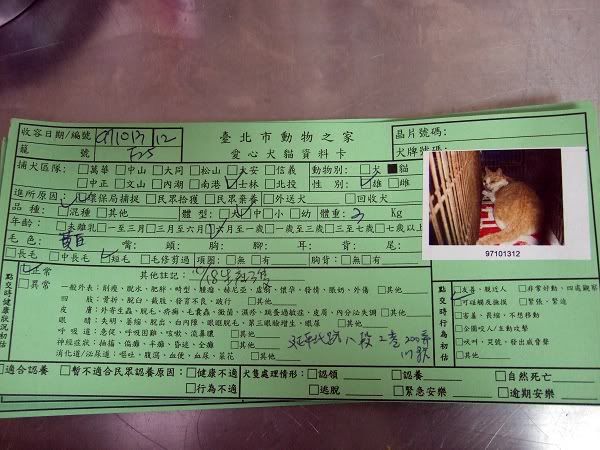 收容日期/編號 97/1013/12 臺北市動物之家 晶片號碼:
籠 號 愛心犬貓資料卡 犬牌號碼
捕犬區隊: □萬華 □中山 □大同 □松山 □大安 □信義 動物別: □犬 ■貓
□中正 □文山 □內湖 □南港 □士林 □北投 性 別: □雄 □雌
進所原因: □環保局捕捉 □民眾拾獲 □民眾棄養 □外送犬 □回收犬
品 種: □混種 □其他 體 型: □大 □中 □小 □幼 體重: 3 Kg
年齡: □未離乳 □一至三月 □三月至六月 □六月至一歲 □一歲至三歲 □三至七歲 □七歲以上
毛 色: 黃白 嘴: 頭: 胸: 腳: 耳: 背: 尾:
□長毛 □中長毛 □短毛 □毛修剪過 項圈: □無 □有 胸背: □無 □有
97101312
點交時健康狀況初估
□正常 其他註記:
□異常 一般外表: □削瘦、脫水、肥胖、畸型、腫瘤、赫尼亞、虛弱、懷孕、發情、脹奶、外傷 □其他
四 肢: □骨折、脫臼、截肢、發育不良、跛行 □其他
皮 膚: □外寄生蟲、脫毛、疥癬、毛囊蟲、黴菌、濕疹、跳蚤過敏症、皮屑、內分泌失調 □其他
眼 睛: □失明、萎縮、脫出、白內障、眼瞼脫毛、第三眼瞼增生、眼屎 □其他
呼 吸 道: □急促、呼吸困難、咳嗽、流鼻膿 □其他
神經症狀: □抽搐、偏癱、半癱、昏迷、全癱 □其他
消化道/泌尿道: □嘔吐、腹瀉、血便、血尿、菜花 □其他
延平北路八段2巷200弄
點交時行為初估
□友善、親近人 □非常好動、四處觀察
□可碰觸及撫摸 □緊張、緊迫
□害羞、畏縮、不想移動
□企圖咬人/主動攻擊
□吠叫、哭號、發出威脅聲
□其他
□適合認養 □暫不適合民眾認養原因: □健康不適 犬隻處理情形: □認領 □認養 □自然死亡
□行為不適 □逃脫 □緊急安樂 □逾期安樂